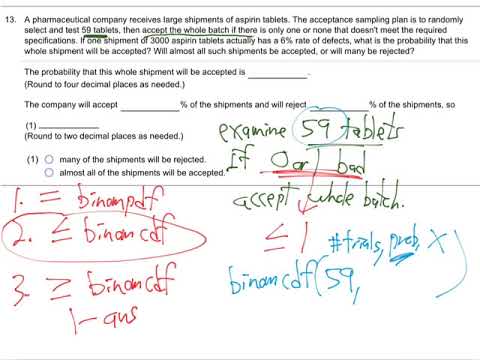 13. A pharmaceutical company receives large shipments of aspirin tablets. The acceptance sampling plan is to randomly
select and test 59 tablets, then accept the whole batch if there is only one or none that doesn't meet the required
specifications. If one shipment of 3000 aspirin tablets actually has a 6% rate of defects, what is the probability that this
whole shipment will be accepted? Will almost all such shipments be accepted, or will many be rejected?
The probability that this whole shipment will be accepted is ________.
(Round to four decimal places as needed.)
The company will accept ________ % of the shipments and will reject ________ % of the shipments, so
(1) ________
(Round to two decimal places as needed.)
(1) many of the shipments will be rejected.
almost all of the shipments will be accepted.
examine 59 tablets
If 0 or 1 bad
accept whole batch.
1. = binompdf
2. ≤ binomcdf
3. ≥ binomcdf
1 - ans
≤ 1
# trials, prob, X
binomcdf(59, )